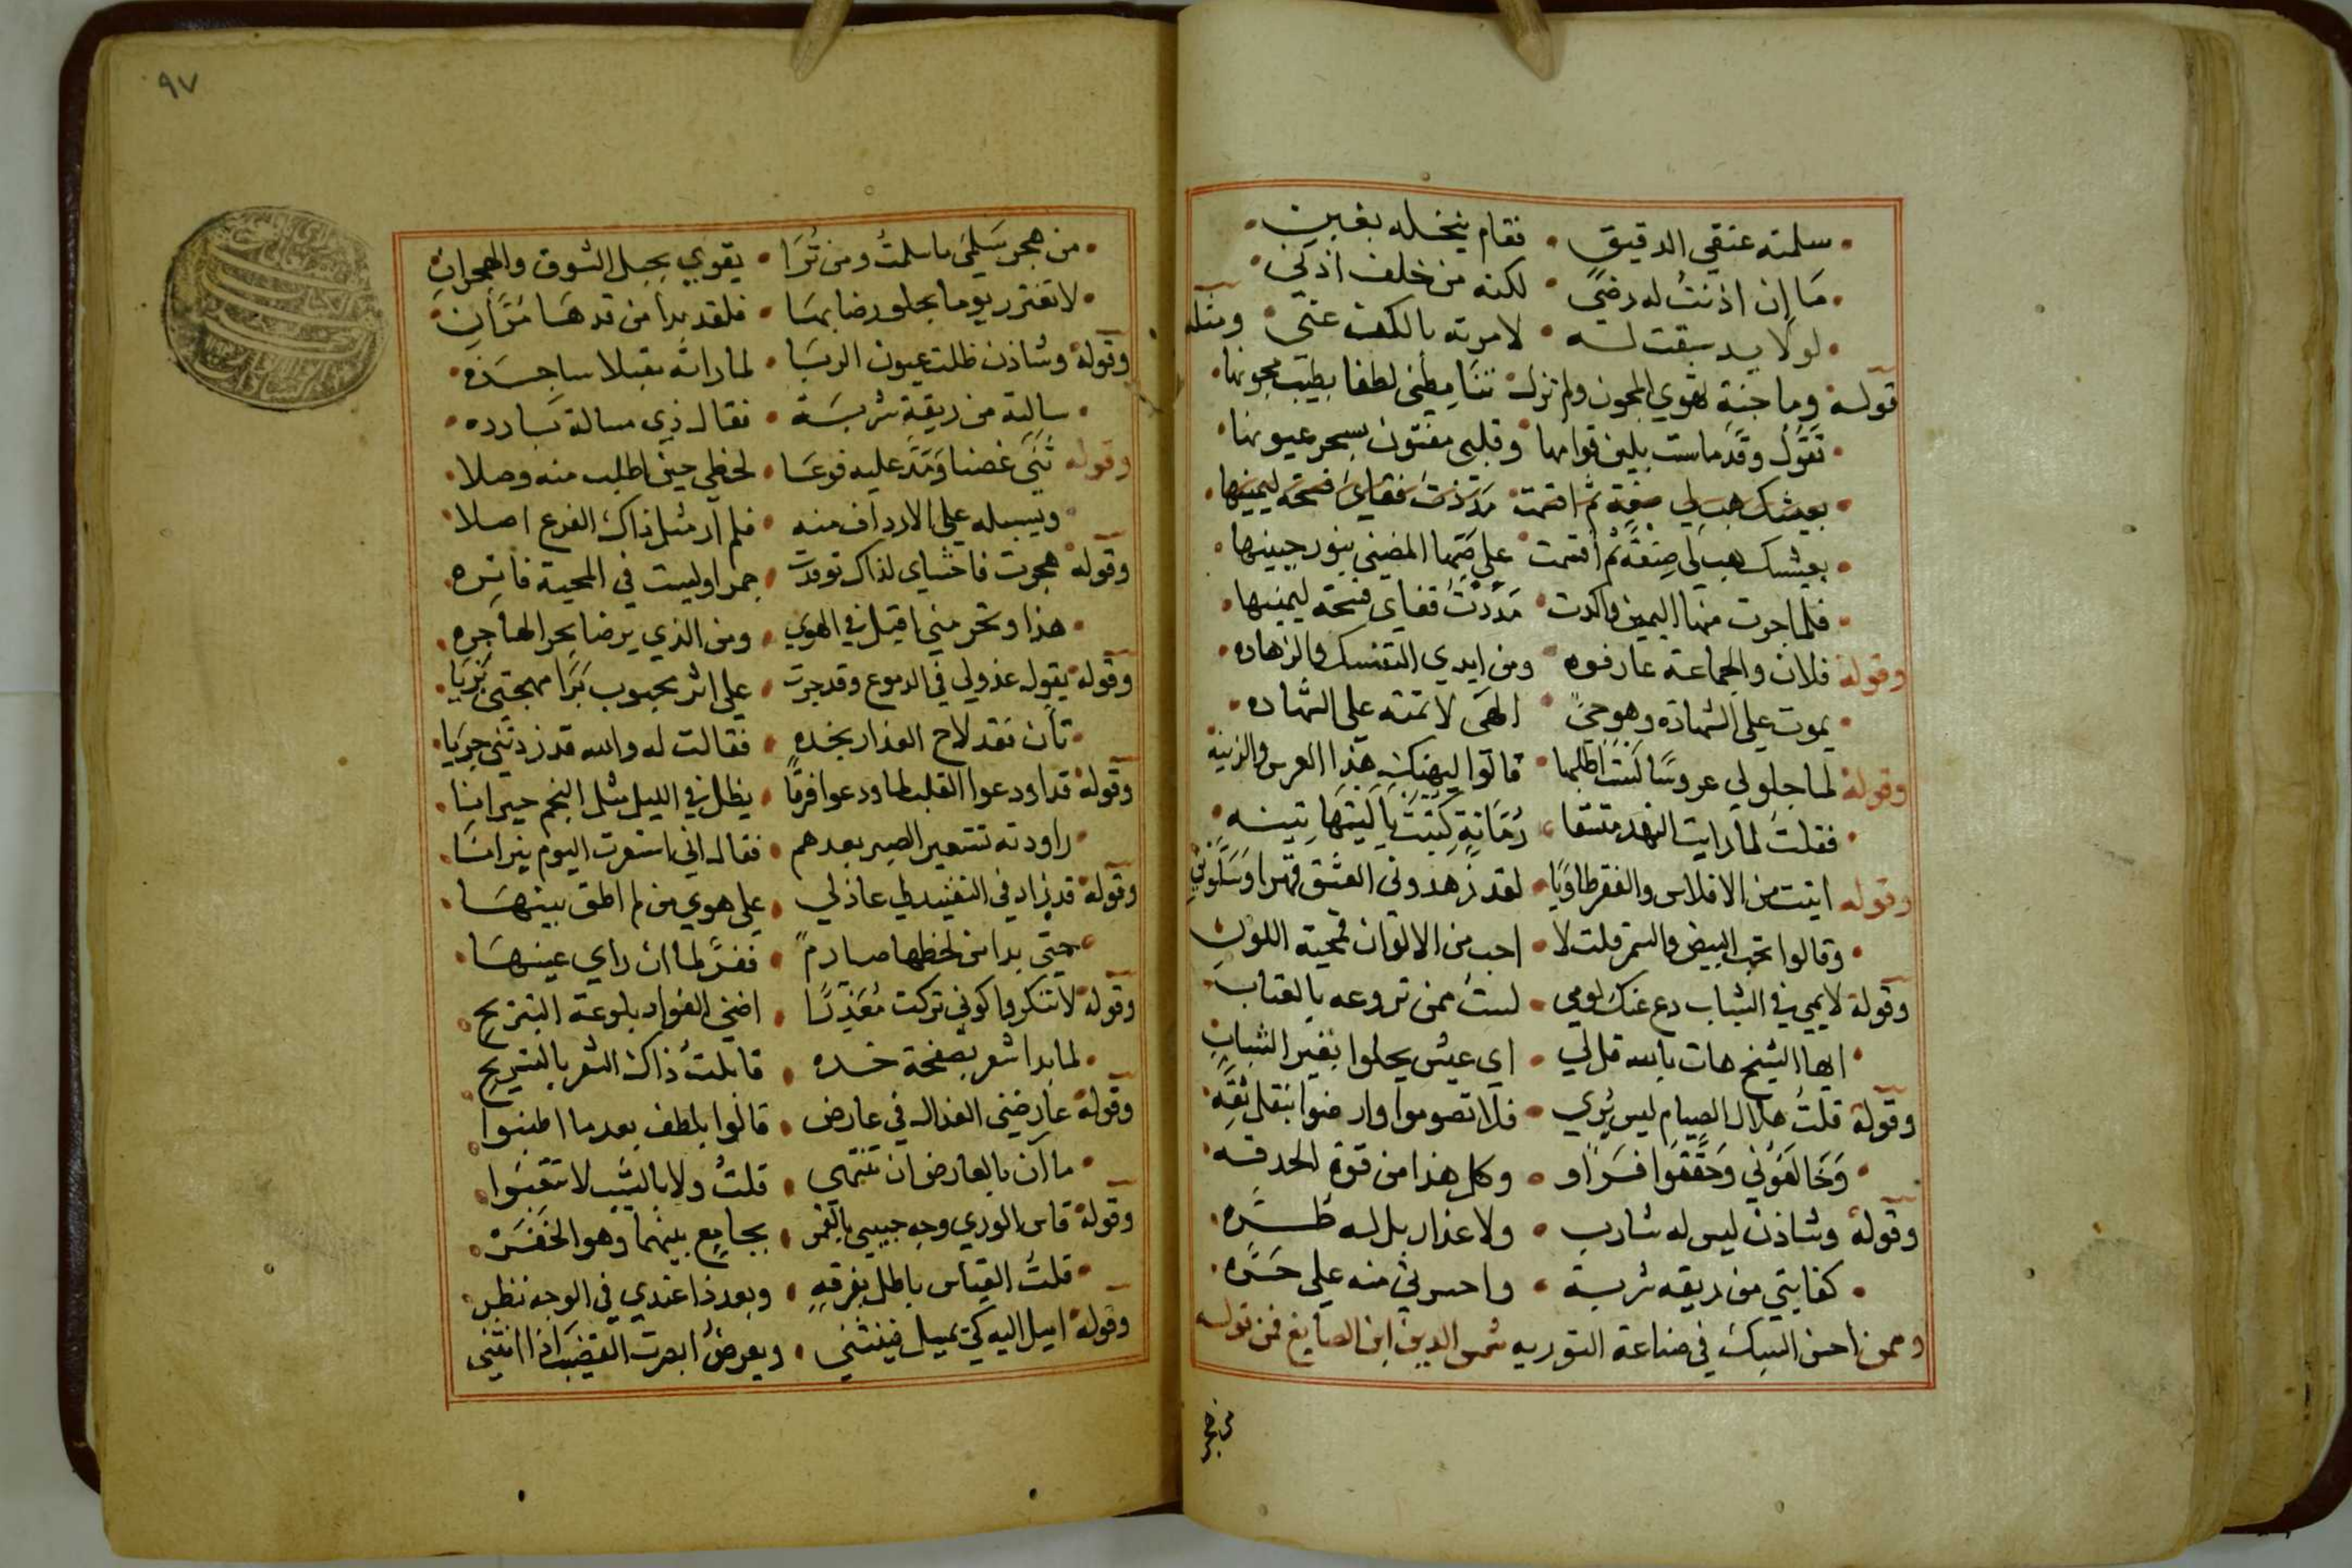 سلمته عنقي الدقيق • فقام ينخله بغبن
ما إن اذنت له رضى • لكنه من خلف اذني
لولا يد سبقت له • لامرته بالكف عني ومثله
قوله وما جنة تهوي المجون ولم تزل تنامطني لطفا بطيب مجونها
تقول وقد ماست بلين قوامها وقلبي مفتون بسحر عيونها
بعيشك هب لي صفعة ثم اقسمت مددت قفاي فتحة ليمينها
بعيشك هب لي صفعة ثم اقسمت على ضمها المضني بنور جبينها
فلما جرت منها اليمين واكدت مددت قفاي فتحة ليمينها
وقوله فلان والجماعة عارفوه ومن ايدي التنسك والزهاده
يموت على الشهادة وهو حي الهي لا تمته على الشهاده
وقوله لما جلوا لي عروسا لست اطلبها قالوا ليهنك هذا العرس والزينه
فقلت لما رايت النهد متسقا رمانة كتبت يا ليتها تينه
وقوله اتيت من الافلاس والفقر طاويا • لقد زهدوني العشق قهرا وسلوني
وقالوا تحب البيض والسمر قلت لا • احب من الالوان قمحية اللون
وقوله لايمي في الشباب دع عنك لومي • لست ممن تروعه بالعتاب
ايها الشيخ هات بالله قل لي • اي عيش يحلوا بغير الشباب
وقوله قلت هلال الصيام ليس يري • فلا تصوموا وارضوا بنقل ثقه
وخالفوني وحققوا فراو • وكل هذا من قوة الحدقه
وقوله وشاذن ليس له شارب • ولا عذار بل له طره
كفايتي من ريقه شربة • واحسرتي منه على حسره
وممن احسن السبك في صناعة التوريه شمس الدين ابن الصايغ فمن قوله
من هجر
٩٧
من هجر سلمى ما سلمت ومن ترا • يقوي بحبل الشوق والهجران
لا تغترر يوما بحلو رضابها • فلقد بدا من قدها مران
وقوله وشاذن ظلت عيون الربا • لما راته مقبلا ساجده
سالته من ريقة شربة • فقال ذي مسالة بارده
وقوله ثنى غصنا ومد عليه فرعا • لحظي حين اطلب منه وصلا
ويسبله على الارداف منه • فلم ار مثل ذاك الفرع اصلا
وقوله هجرت فاحشاي لذاك توقدت • جمرا وليست في المحبة فاتره
هذا وتحرمني اقيل في الهوي • ومن الذي يرضا بحر الهاجره
وقوله يقول عذولي في الدموع وقد جرت • على اثر محبوب برا مهجتي بريا
تأن فقد لاح العذار بخده • فقالت له والله قد زدتني جريا
وقوله قد اودعوا القلب لما ودعوا فرقا • يظل في الليل مثل النجم حيرانا
راودته تستعير الصبر بعدهم • فقال اني استعرت اليوم نيرانا
وقوله قد زاد في التفنيد لي عاذلي • على هوي من لم اطق بينها
حتى بدا من لحظها صارم • ففر لما ان راي عينها
وقوله لا تنكروا كوني تركت معذبا • اضني الفواد بلوعة التبريح
لما بدا شعر بصفحة خده • قابلت ذاك الشعر بالتسريح
وقوله عارضني العذال في عارض • قالوا بلطف بعد ما اطنبوا
ما آن بالعارض ان تنتهي • قلت ولا بالشيب لا تتعبوا
وقوله قاس الوري وجه حبيبي بالقمر • بجامع بينهما وهو الخفر
قلت القياس باطل بفرقه • وبعد ذا عندي في الوجه نظر
وقوله اميل اليه كي يميل فينثني • ويعرض ابصرت القضيب اذا انثني